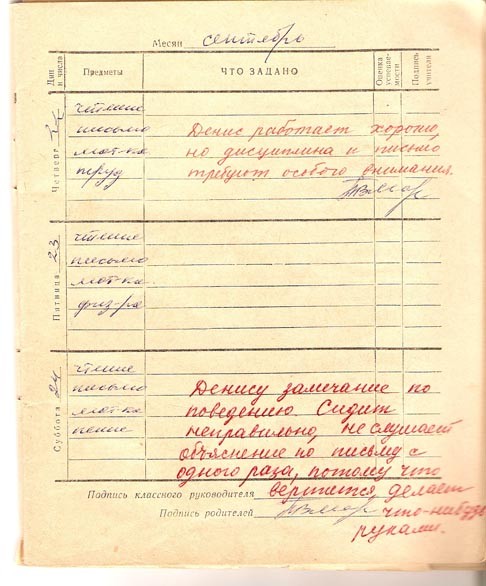 Месяц сентябрь
Дни и числа
Предметы
ЧТО ЗАДАНО
Оценка успеваемости
Подпись учителя
Четверг 22
чтение
письмо
мат-ка
труд
Денис работает хорошо,
но дисциплина и письмо
требуют особого внимания.
Пятница 23
чтение
письмо
мат-ка
физ-ра
Суббота 24
чтение
письмо
мат-ка
пение
Денису замечание по
поведению. Сидит
неправильно, не слушает
объяснение по письму с
одного раза, потому что
Подпись классного руководителя вертится, делает
Подпись родителей что-нибудь
руками.